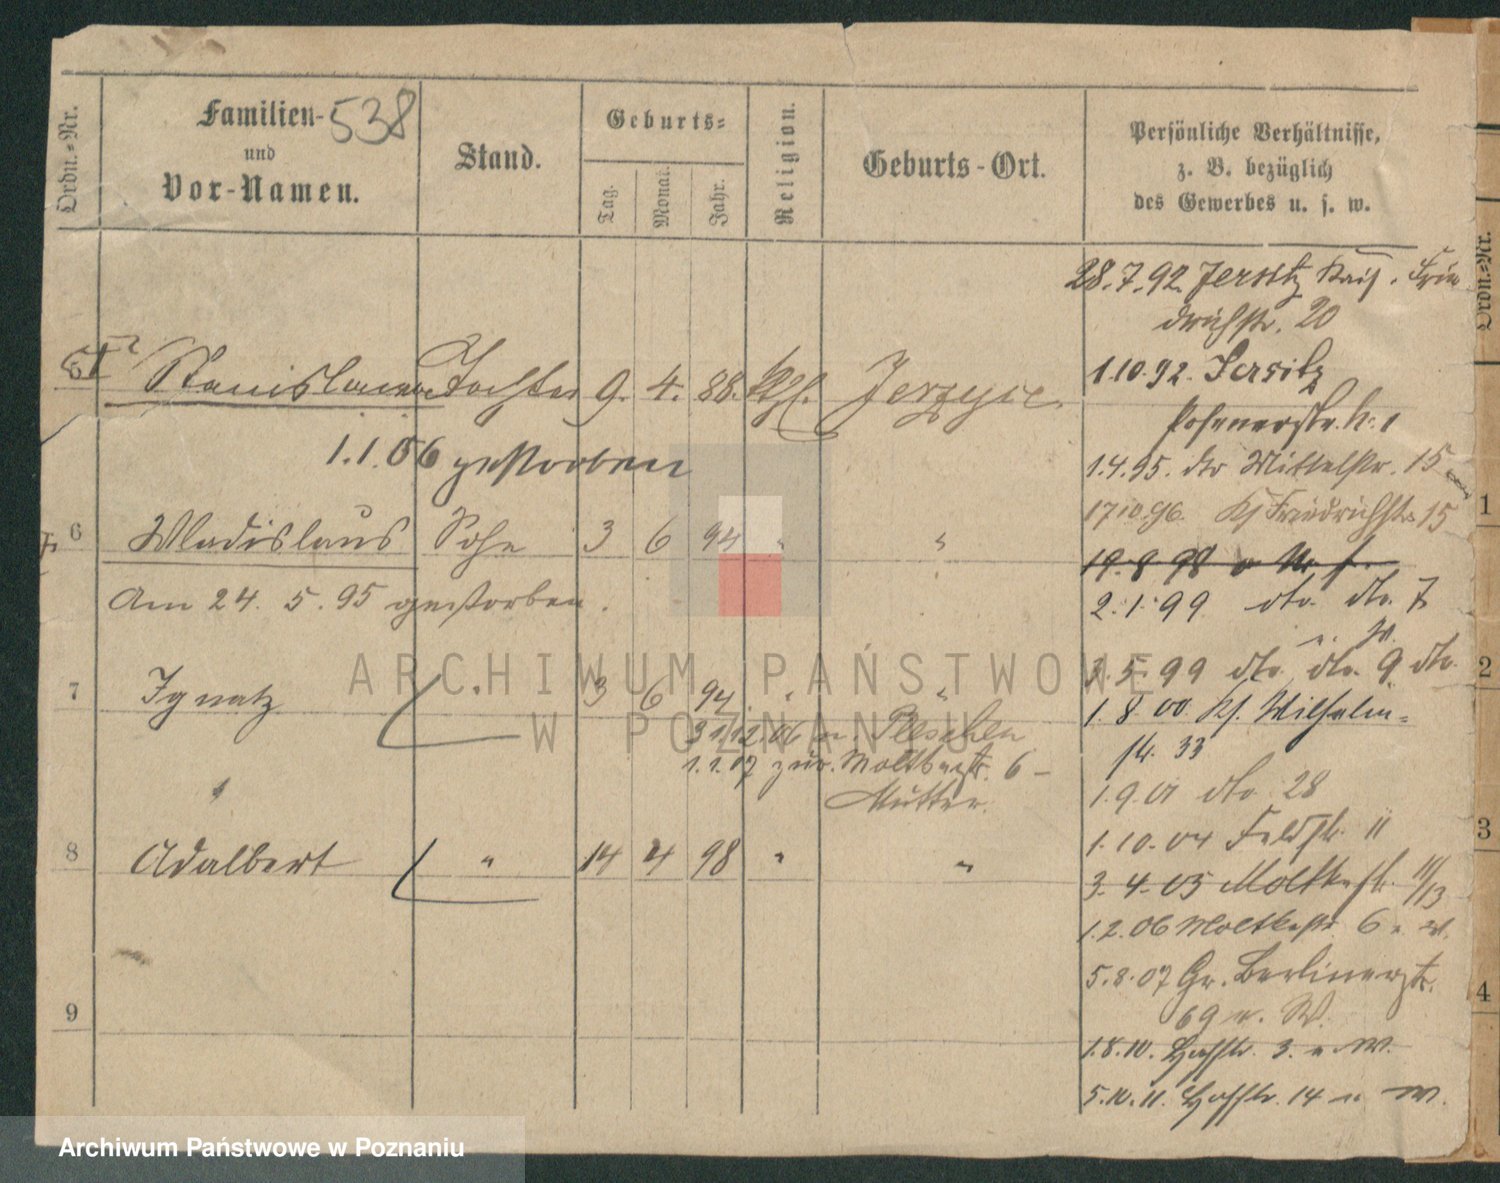 Ordn.=Nr.
Familien-
538
und
Vor-Namen.
Stand.
Geburts=
Tag.
Monat.
Jahr.
Religion.
Geburts-Ort.
Persönliche Verhältnisse,
z. B. bezüglich
des Gewerbes u. s. w.
28.7.92. Jersitz Kais. Frie
drichstr. 20
5 Stanislawa Tochter 9. 4. 88. Kth. Jerzyce
1.10.92. Jersitz
Posenerstr. No 1
1.1.06 gestorben
1.4.95. dto Mittelstr. 15
17 10.96. Friedrichstr 15
6 Wladislaus Sohn 3 6 94 " "
19.8.98
Am 24. 5. 95 gestorben.
2.1.99 dto. dto. 7
3.5.99 dto. dto. 9 dto.
7 Ignatz " 3 6 94. " "
1.8.00 Wilhelm=
str. 33
31.12.06 n. Pleschen
1.1.07 zur. Moltkestr. 6 -
Mutter.
1.9.01 dto 28
1.10.04 Feldstr. 11
8 Adalbert " 14 4 98 " "
3.4.05 Moltkestr. 11/13
1.2.06 Moltkestr. 6
5.8.07 Gr. Berlinerstr.
69 n. W.
9
1.8.10. 3. n. W.
5.10.11. 14 n. W.
Ordn.=Nr.
1
2
3
4
ARCHIWUM PAŃSTWOWE
W POZNANIU
Archiwum Państwowe w Poznaniu